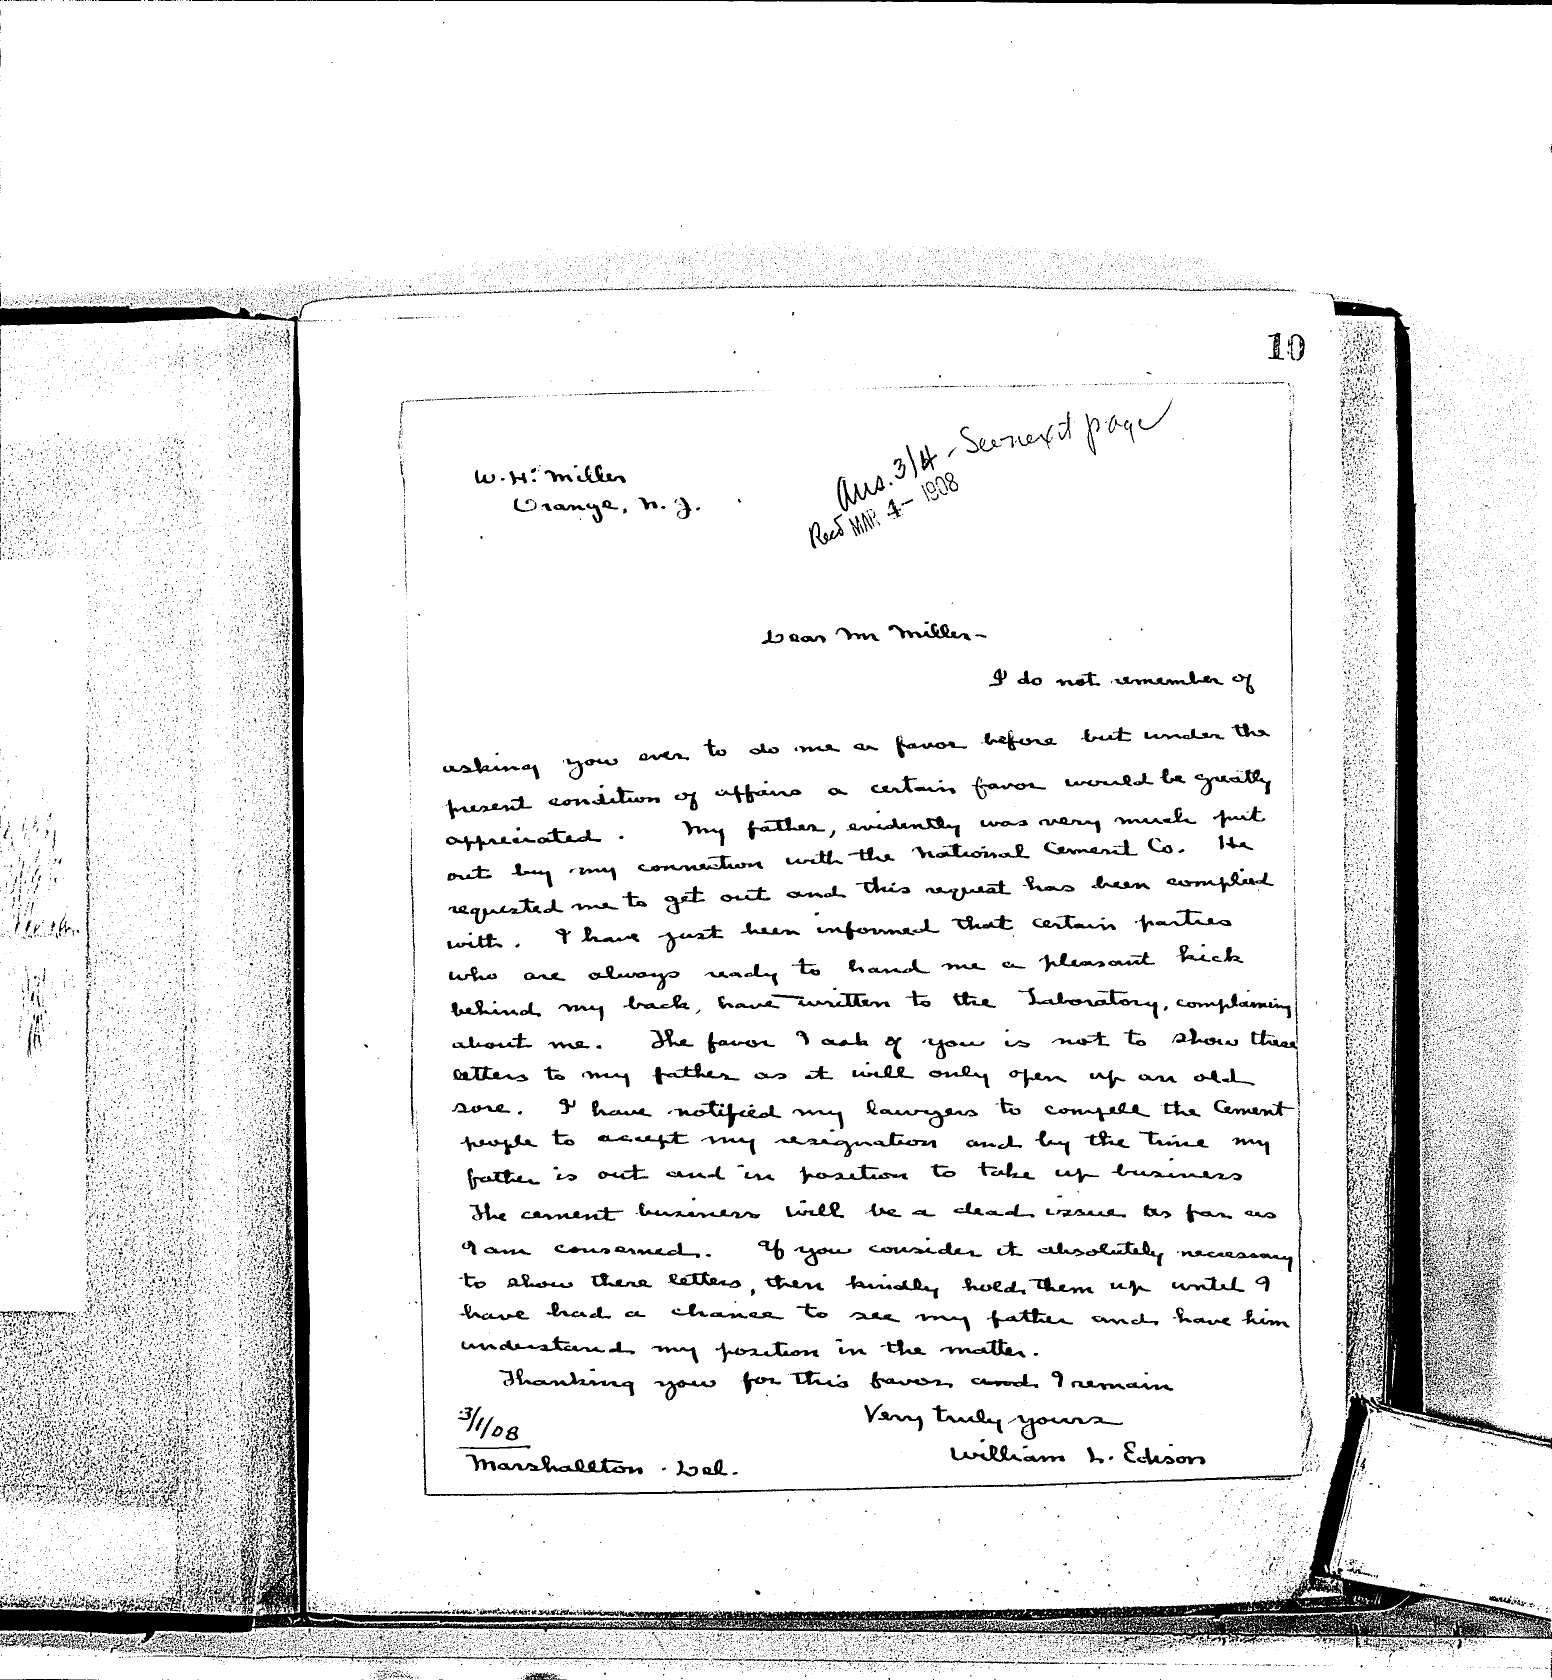 10
Ans. 3/4 - See next page
Recd MAR 4 - 1908
W. H. Miller
Orange, N. J.
Dear Mr Miller -
I do not remember of
asking you ever to do me a favor before but under the
present condition of affairs a certain favor would be greatly
appreciated. My father, evidently was very much put
out by my connection with the National Cement Co. He
requested me to get out and this request has been complied
with. I have just been informed that certain parties
who are always ready to hand me a pleasant kick
behind my back, have written to the Laboratory, complaining
about me. The favor I ask of you is not to show these
letters to my father as it will only open up an old
sore. I have notified my lawyers to compell the Cement
people to accept my resignation and by the time my
father is out and in position to take up business
The cement business will be a dead issue as far as
I am concerned. If you consider it absolutely necessary
to show these letters, then kindly hold them up until I
have had a chance to see my father and have him
understand my position in the matter.
Thanking you for this favor and I remain
Very truly yours
William L. Edison
3/1/08
Marshallton. Del.